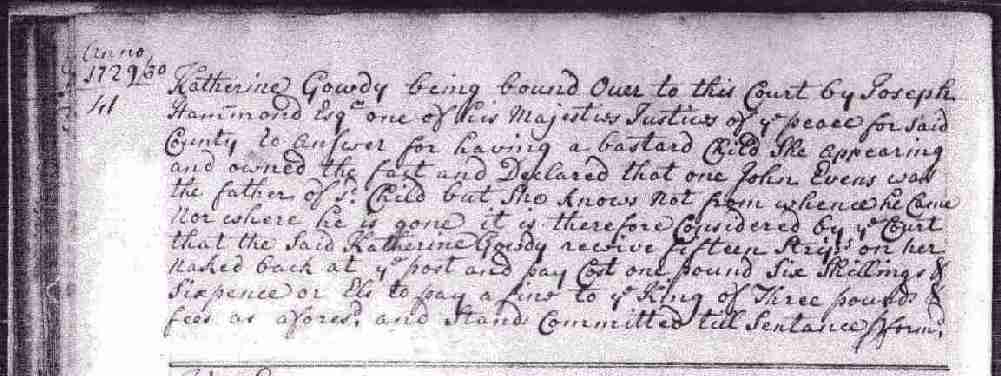 Anno
1729/30
41
Katherine Gowdy being bound Over to this Court by Joseph
Hammond Esqr one of his Majesties Justices of ye peace for said
County to answer for having a bastard Child She appearing
and owned the fact and Declared that one John Evens was
the father of sd. Child but She knows not from whence he Came
Nor where he is gone it is therefore Considered by ye Court
that the Said Katherine Gowdy receive fifteen Strips on her
naked back at ye post and pay Cost one pound Six Shillings &
Sixpence or Els to pay a fine to ye King of Three pounds &
fees as aforesd. and Stand Committed till Sentance pform'd